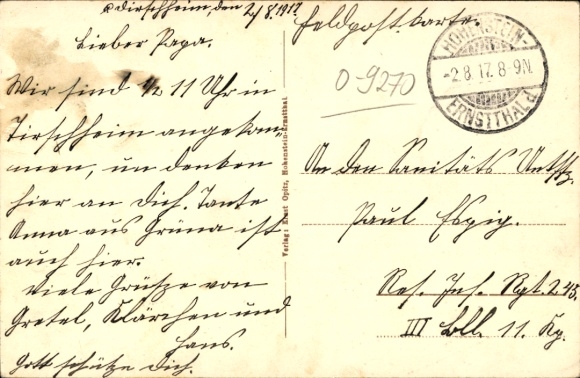 Dirschheim, den 2/8.1917.
Lieber Papa.
Wir sind ½ 11 Uhr in
Tirschheim angekom-
men, un denken
hier an Dich. Tante
Anna aus Grüna ist
auch hier.
Viele Grüsze von
Gretel, Klärchen und
Hans.
Gott schütze Dich.
Verlag: Ernst Opitz, Hohenstein-Ernstthal
Feldpostkarte.
0-9270
HOHENSTEIN-
-2.8.17. 8-9N.
ERNSTTHAL
An den Sanitäts Untffz.
Paul Espig.
Res. Inf. Rgt. 245.
III Btl. 11. Kp.